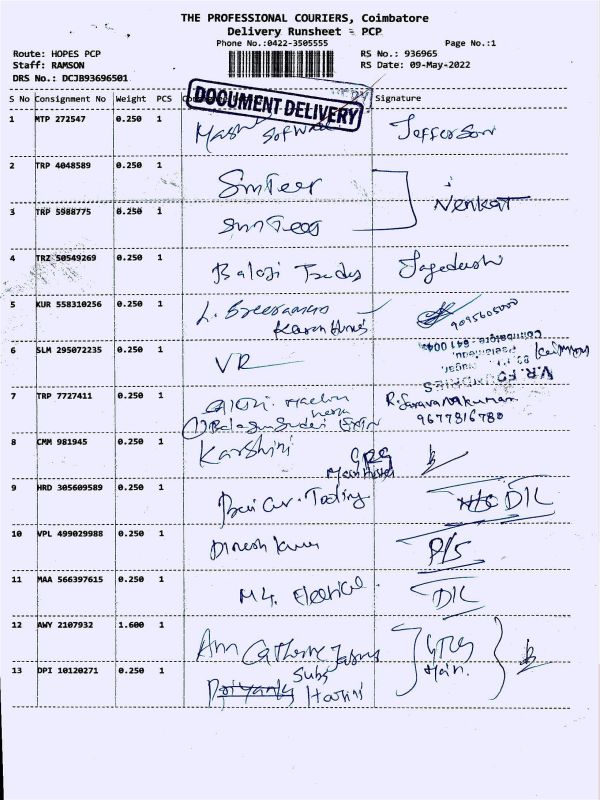 THE PROFESSIONAL COURIERS, Coimbatore
Delivery Runsheet - PCP
Phone No.:0422-3505555 Page No.:1
Route: HOPES PCP RS No.: 936965
Staff: RAMSON RS Date: 09-May-2022
DRS No.: DCJB93696501
S No Consignment No Weight PCS Signature
DOCUMENT DELIVERY
1 MTP 272547 0.250 1 Jefferson
2 TRP 4048589 0.250 1 SmTeer
Venkat
3 TRP 5988775 0.250 1
4 TRZ 50549269 0.250 1 Balaji
5 KUR 558310256 0.250 1
9095605000
6 SLM 295072235 0.250 1 VR
7 TRP 7727411 0.250 1 R. Saravanakumar
9677816780
8 CMM 981945 0.250 1 Karshini GRG
9 HRD 305609589 0.250 1 D/L
10 VPL 499029988 0.250 1 Dinesh Kumar P/S
11 MAA 566397615 0.250 1 M.G. Electrical D/L
12 AWY 2107932 1.600 1 Ann Catherine GRG
Main
13 DPI 10120271 0.250 1 Subs
Harini